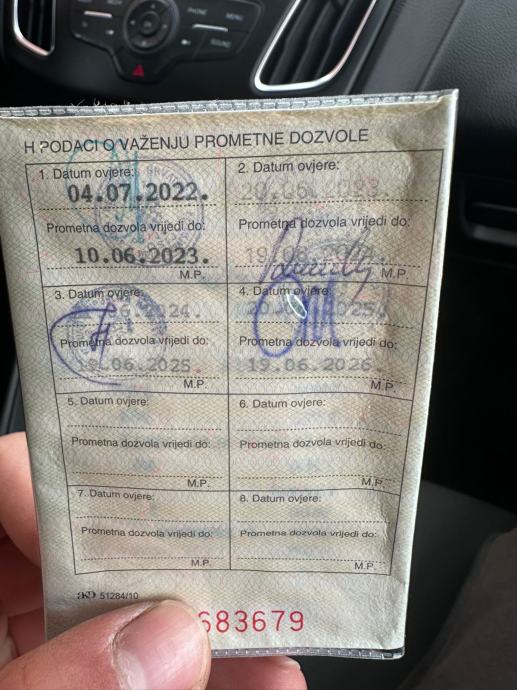 PHONE
MENU
SOUND
H PODACI O VAŽENJU PROMETNE DOZVOLE
1. Datum ovjere:
04.07.2022.
Prometna dozvola vrijedi do:
10.06.2023.
M.P.
2. Datum ovjere:
Prometna dozvola vrijedi do:
M.P.
3. Datum ovjere:
Prometna dozvola vrijedi do:
06.2025.
M.P.
4. Datum ovjere:
2025.
Prometna dozvola vrijedi do:
19.06.2026.
M.P.
5. Datum ovjere:
Prometna dozvola vrijedi do:
M.P.
6. Datum ovjere:
Prometna dozvola vrijedi do:
M.P.
7. Datum ovjere:
Prometna dozvola vrijedi do:
M.P.
8. Datum ovjere:
Prometna dozvola vrijedi do:
M.P.
51284/10
683679